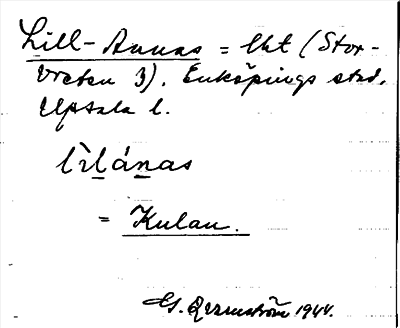 Lill-Annas = lht (Stor-
vreten 3). Enköpings stad.
Uppsala l.
lìlánas
= Kulan.
1944.